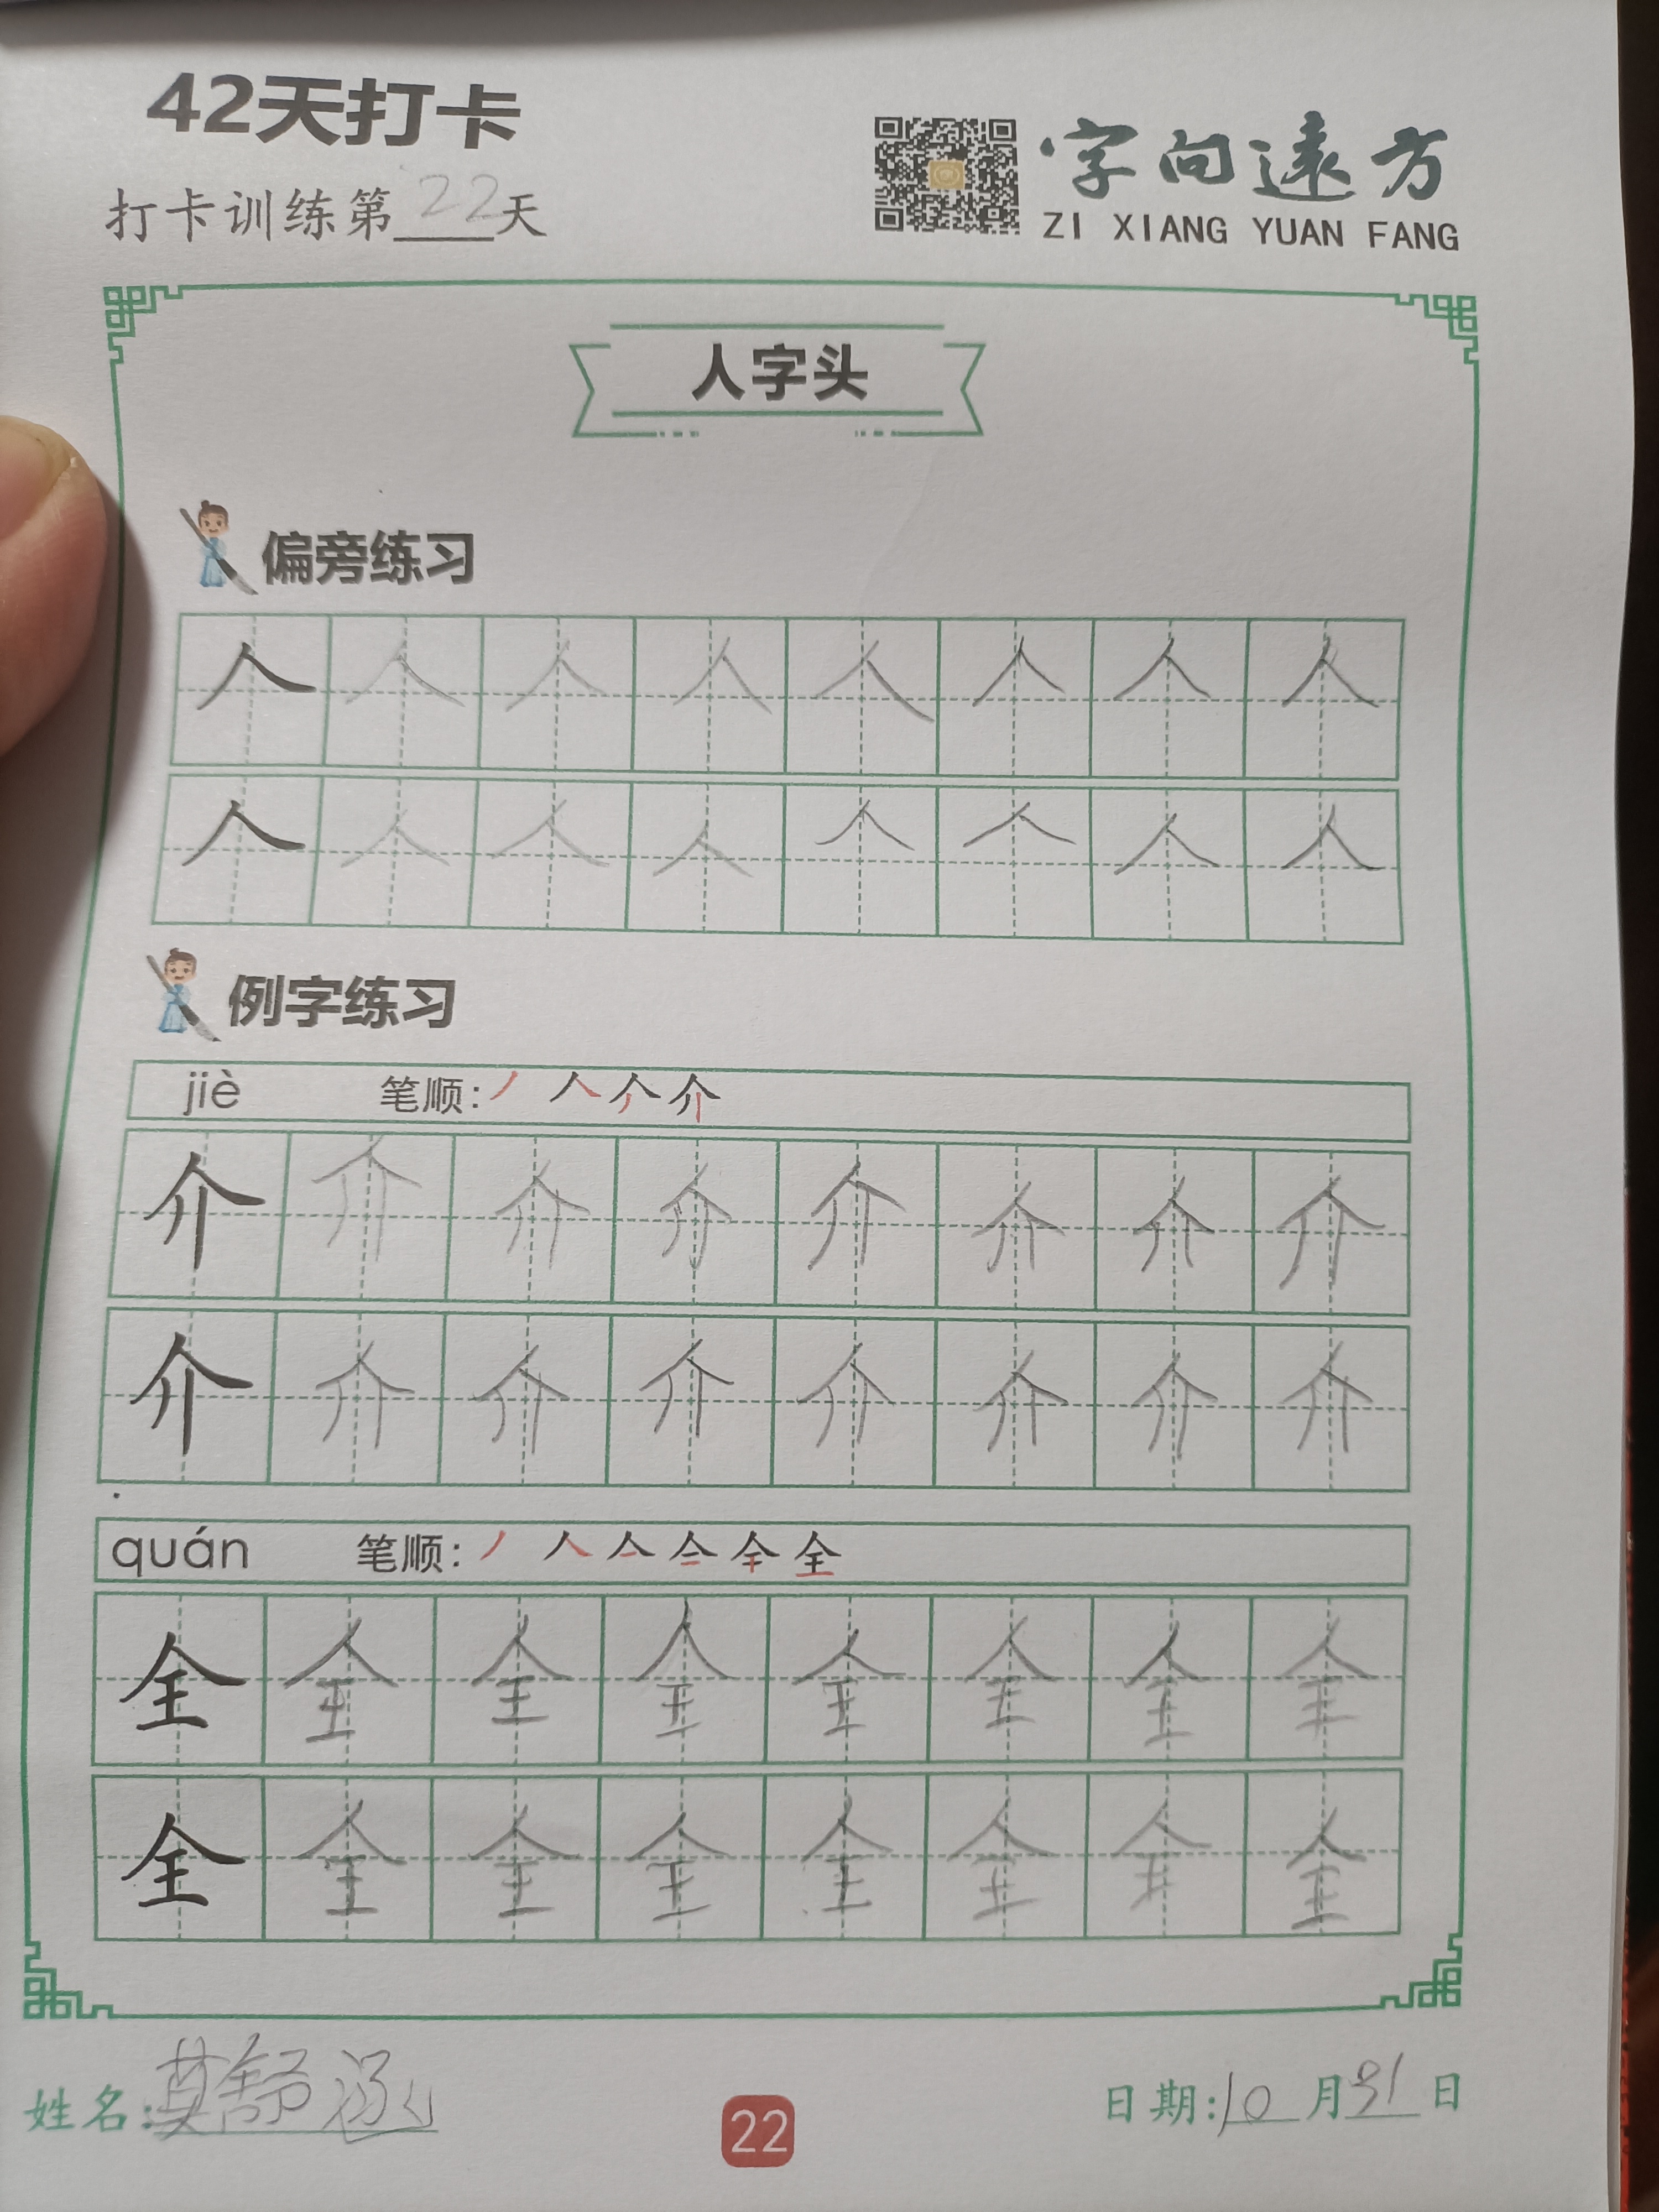 42天打卡
打卡训练第22天
字向遠方
ZI XIANG YUAN FANG
人字头
偏旁练习
人 人 人 人 人 人 人 人
人 人 人 人 人 人 人 人
例字练习
jiè 笔顺:丿 人 介 介
介 介 介 介 介 介 介 介
介 介 介 介 介 介 介 介
quán 笔顺:丿 人 𠆢 仝 全 全
全 全 全 全 全 全 全 全
全 全 全 全 全 全 全 全
姓名:莫舒涵
22
日期:10月31日